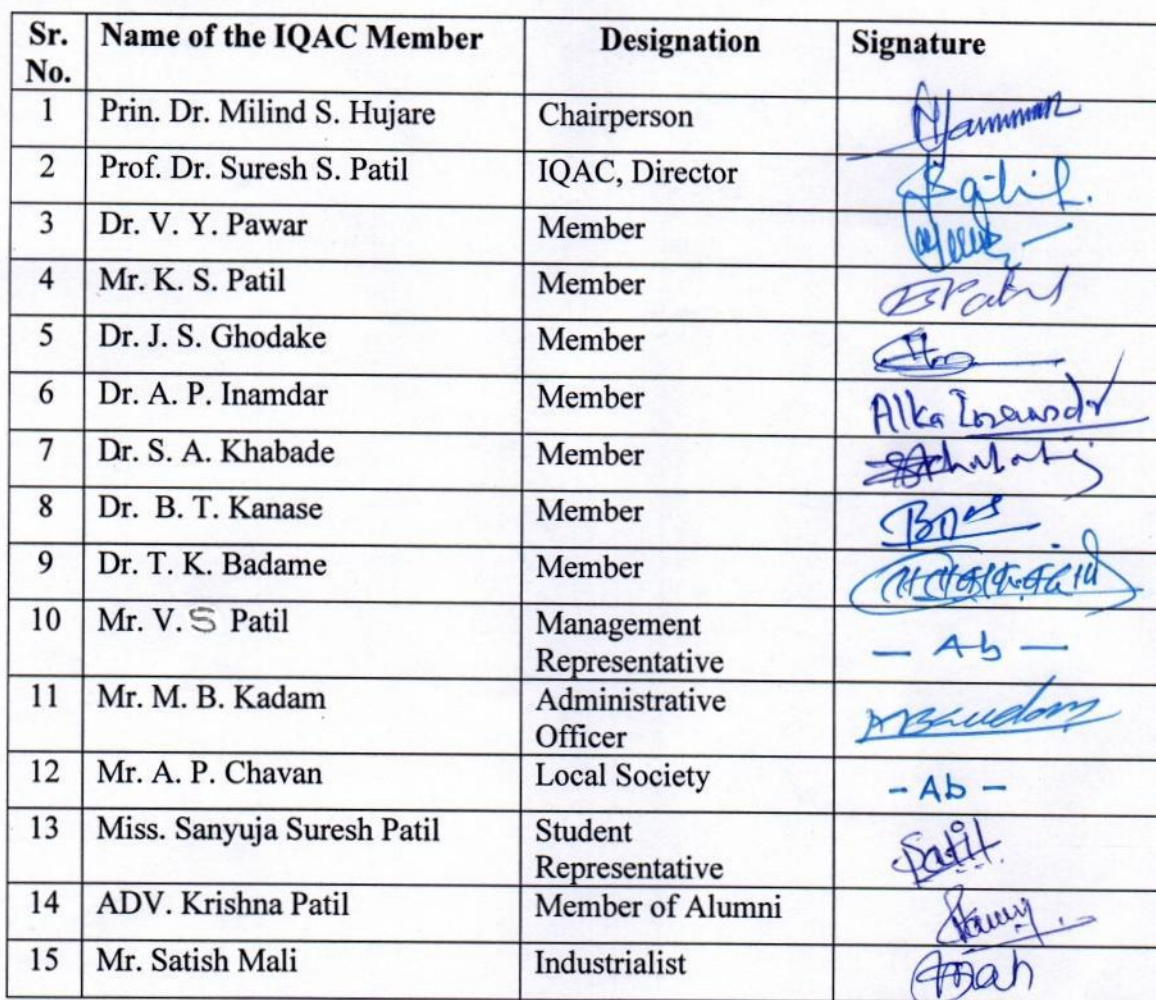 Sr. No. Name of the IQAC Member Designation Signature
1 Prin. Dr. Milind S. Hujare Chairperson
2 Prof. Dr. Suresh S. Patil IQAC, Director
3 Dr. V. Y. Pawar Member
4 Mr. K. S. Patil Member
5 Dr. J. S. Ghodake Member
6 Dr. A. P. Inamdar Member Alka Inamdar
7 Dr. S. A. Khabade Member
8 Dr. B. T. Kanase Member
9 Dr. T. K. Badame Member
10 Mr. V. S Patil Management Representative — Ab —
11 Mr. M. B. Kadam Administrative Officer
12 Mr. A. P. Chavan Local Society - Ab -
13 Miss. Sanyuja Suresh Patil Student Representative
14 ADV. Krishna Patil Member of Alumni
15 Mr. Satish Mali Industrialist